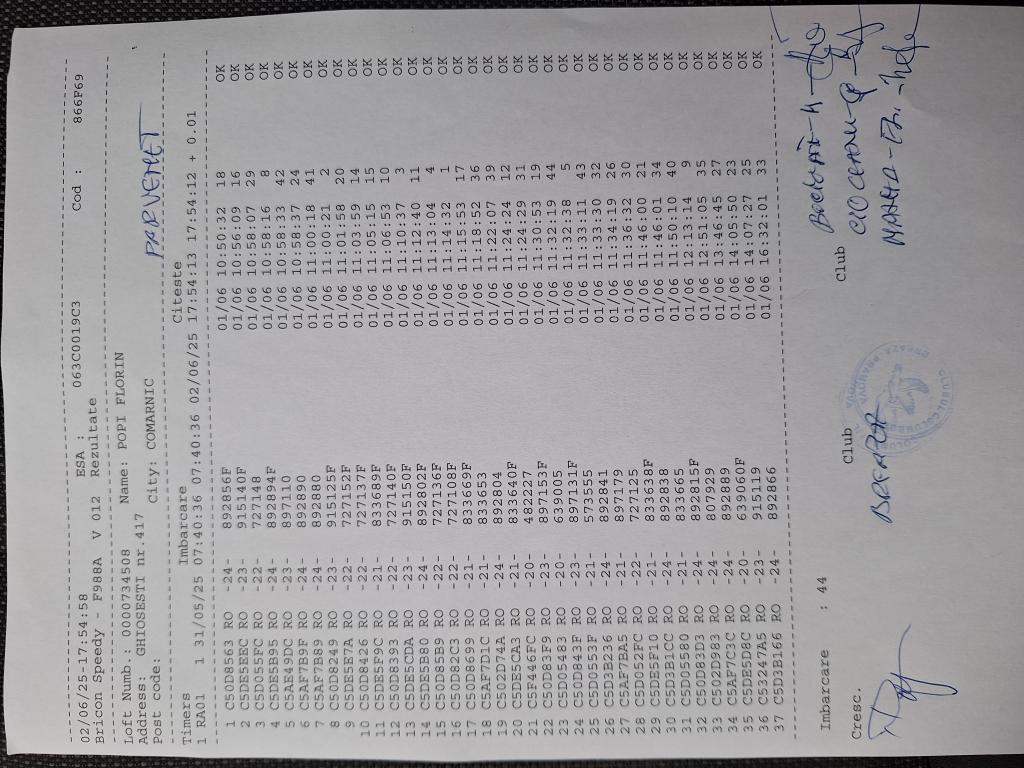 02/06/25-17:54:58 ESA : 063C0019C3 Cod : 866F69
Bricon Speedy - F988A V 012 Rezultate
Loft Numb.: 0000734508 Name: POPI FLORIN
Address: GHIOSESTI nr.417
Post code: City: COMARNIC PARVEMET
Timers Imbarcare Citeste
1 RA01 1 31/05/25 07:40:36 07:40:36 02/06/25 17:54:13 17:54:12 + 0.01
1 C50D8563 RO -24- 892856F 01/06 10:50:32 18 OK
2 C5DE5EEC RO -23- 915140F 01/06 10:56:09 16 OK
3 C5D055FC RO -22- 727148 01/06 10:58:07 29 OK
4 C5DE5B95 RO -24- 892894F 01/06 10:58:16 8 OK
5 C5AE49DC RO -23- 897110 01/06 10:58:33 42 OK
6 C5AF7B9F RO -24- 892890 01/06 10:58:37 24 OK
7 C5AF7B89 RO -24- 892880 01/06 11:00:18 41 OK
8 C50D8249 RO -23- 915125F 01/06 11:00:21 2 OK
9 C5DE5E7A RO -22- 727152F 01/06 11:01:58 20 OK
10 C50D8426 RO -22- 727137F 01/06 11:03:59 14 OK
11 C5DE5F9C RO -21- 833689F 01/06 11:05:15 15 OK
12 C50D8393 RO -22- 727140F 01/06 11:06:53 10 OK
13 C5DE5CDA RO -23- 915150F 01/06 11:10:37 3 OK
14 C5DE5B80 RO -24- 892802F 01/06 11:12:40 11 OK
15 C50D85B9 RO -22- 727136F 01/06 11:13:04 4 OK
16 C50D82C3 RO -22- 727108F 01/06 11:14:32 1 OK
17 C50D8699 RO -21- 833669F 01/06 11:15:53 17 OK
18 C5AF7D1C RO -21- 833653 01/06 11:18:52 36 OK
19 C502D74A RO -24- 892804 01/06 11:22:07 39 OK
20 C5DE5CA3 RO -21- 833640F 01/06 11:24:24 12 OK
21 C5F446FC RO -20- 482227 01/06 11:24:29 31 OK
22 C50D83F9 RO -23- 897153F 01/06 11:30:53 19 OK
23 C5D05483 RO -20- 639005 01/06 11:32:19 44 OK
24 C50D843F RO -23- 897131F 01/06 11:32:38 5 OK
25 C5D0553F RO -21- 573555 01/06 11:33:11 43 OK
26 C5D3B236 RO -24- 892841 01/06 11:33:30 32 OK
27 C5AF7BA5 RO -21- 897179 01/06 11:34:19 26 OK
28 C5D052FC RO -22- 727125 01/06 11:36:32 30 OK
29 C5DE5F10 RO -21- 833638F 01/06 11:46:00 21 OK
30 C5D3B1CC RO -24- 892838 01/06 11:46:01 34 OK
31 C5D05580 RO -21- 833665 01/06 11:50:10 40 OK
32 C50D83D3 RO -24- 892815F 01/06 12:13:14 9 OK
33 C502D983 RO -24- 807929 01/06 12:51:05 35 OK
34 C5AF7C3C RO -24- 892889 01/06 13:46:45 27 OK
35 C5DE5D8C RO -20- 639060F 01/06 14:05:50 23 OK
36 C53247A5 RO -23- 915119 01/06 14:07:27 25 OK
37 C5D3B166 RO -24- 892866 01/06 16:32:01 33 OK
Imbarcare : 44
Cresc. Club Club